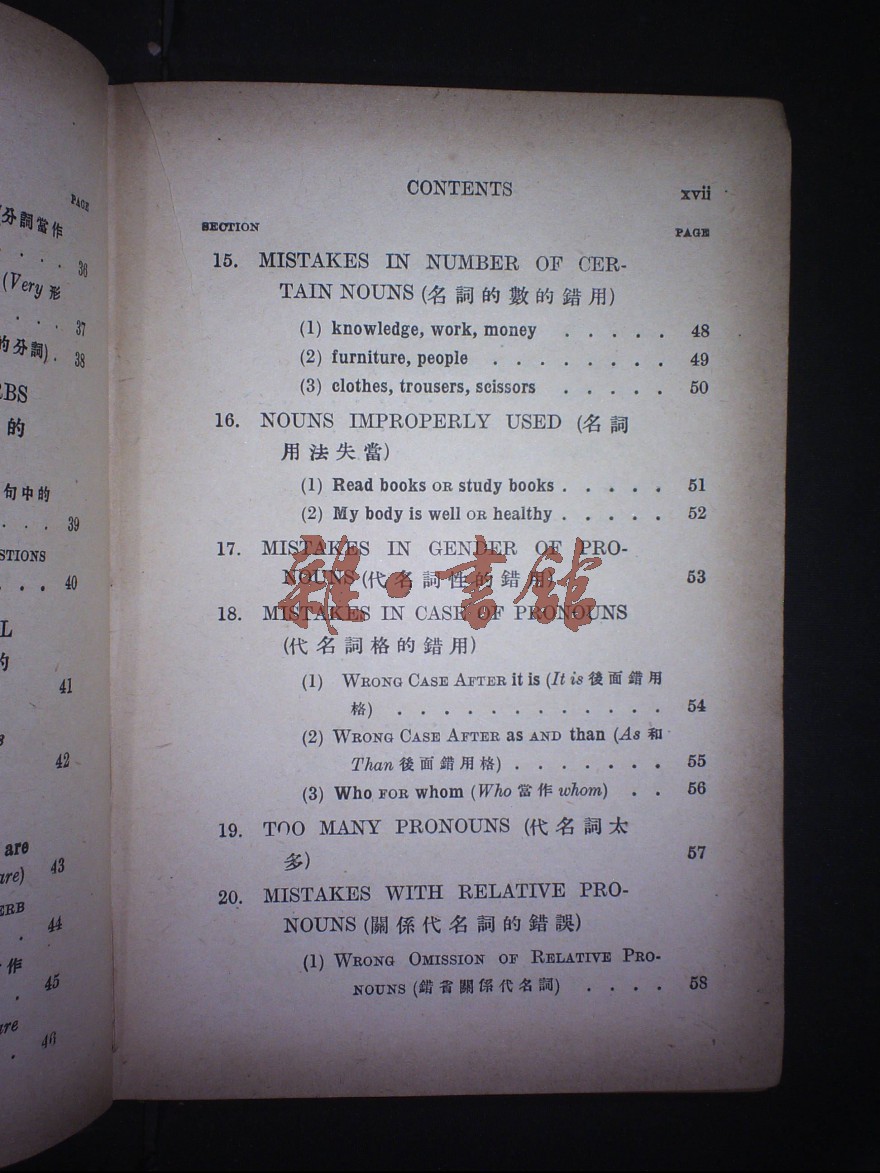 PAGE
(分詞當作
. . . . 36
(Very 形
. . . . 37
的分詞) . 38
RBS
的
句中的
. . . . 39
STIONS
. . . . 40
L
的
41
42
are
are) 43
ERB
. 44
作
. 45
are
. 46
CONTENTS xvii
SECTION PAGE
15. MISTAKES IN NUMBER OF CER-
TAIN NOUNS (名詞的數的錯用)
(1) knowledge, work, money . . . . . 48
(2) furniture, people . . . . . . . . 49
(3) clothes, trousers, scissors . . . . . 50
16. NOUNS IMPROPERLY USED (名詞
用法失當)
(1) Read books OR study books . . . . . 51
(2) My body is well OR healthy . . . . . 52
17. MISTAKES IN GENDER OF PRO-
NOUNS (代名詞性的錯用) 53
雜·書館
18. MISTAKES IN CASE OF PRONOUNS
(代名詞格的錯用)
(1) WRONG CASE AFTER it is (It is 後面錯用
格) . . . . . . . . . . . . 54
(2) WRONG CASE AFTER as AND than (As 和
Than 後面錯用格) . . . . . . . 55
(3) Who FOR whom (Who 當作 whom) . . 56
19. TOO MANY PRONOUNS (代名詞太
多) 57
20. MISTAKES WITH RELATIVE PRO-
NOUNS (關係代名詞的錯誤)
(1) WRONG OMISSION OF RELATIVE PRO-
NOUNS (錯省關係代名詞) . . . . 58